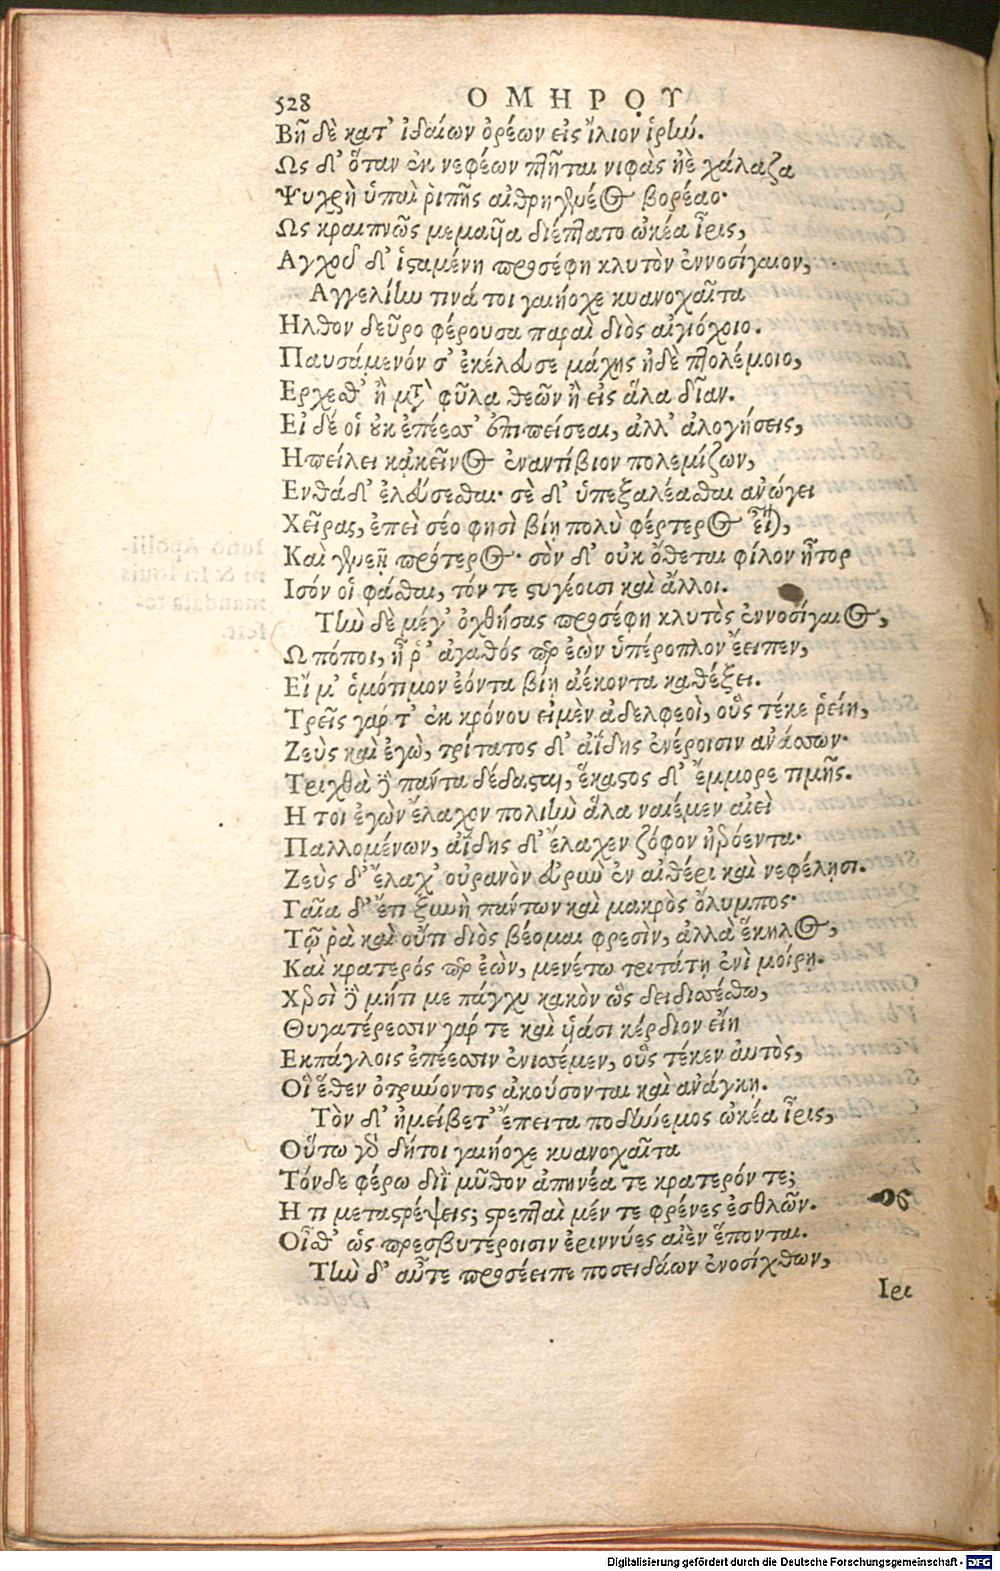 528 ΟΜΗΡΟΥ
Βῆ δὲ κατ' ἰδαίων ὀρέων εἰς ἴλιον ἱρήν.
Ως δ' ὅταν ἐκ νεφέων πτῆται νιφὰς ἠὲ χάλαζα
Ψυχρὴ ὑπαὶ ῥιπῆς αἰθρηγενέος βορέαο·
Ως κραιπνῶς μεμαυῖα διέπτατο ὠκέα ἶρις,
Αγχοῦ δ' ἱσταμένη προσέφη κλυτὸν ἐννοσίγαιον,
Αγγελίην τινά τοι γαιήοχε κυανοχαῖτα
Ηλθον δεῦρο φέρουσα παραὶ διὸς αἰγιόχοιο.
Παυσάμενόν σ' ἐκέλευσε μάχης ἠδὲ πτολέμοιο,
Ερχεσθ' ἢ μετὰ φῦλα θεῶν ἢ εἰς ἅλα δῖαν.
Εἰ δέ οἱ οὐκ ἐπέεσσ' ἐπιπείσεαι, ἀλλ' ἀλογήσεις,
Ηπείλει κἀκεῖνος ἐναντίβιον πολεμίζων,
Ενθάδ' ἐλεύσεσθαι· σὲ δ' ὑπεξαλέασθαι ἀνώγει
Χεῖρας, ἐπεὶ σέο φησὶ βίῃ πολὺ φέρτερος εἶναι,
Καὶ γενεῇ πρότερος· σὸν δ' οὐκ ὄθεται φίλον ἦτορ
Ισόν οἱ φάσθαι, τόν τε στυγέουσι καὶ ἄλλοι.
Τὴν δὲ μέγ' ὀχθήσας προσέφη κλυτὸς ἐννοσίγαιος,
Ω πόποι, ἦ ῥ' ἀγαθός περ ἐὼν ὑπέροπλον ἔειπεν,
Εἴ μ' ὁμότιμον ἐόντα βίῃ ἀέκοντα καθέξει.
Τρεῖς γάρ τ' ἐκ κρόνου εἰμὲν ἀδελφεοὶ, οὓς τέκε ῥείη,
Ζεὺς καὶ ἐγὼ, τρίτατος δ' ἀΐδης ἐνέροισιν ἀνάσσων·
Τριχθὰ δὲ πάντα δέδασται, ἕκαστος δ' ἔμμορε τιμῆς.
Η τοι ἐγὼν ἔλαχον πολιὴν ἅλα ναιέμεν αἰεὶ
Παλλομένων, ἀΐδης δ' ἔλαχεν ζόφον ἠερόεντα·
Ζεὺς δ' ἔλαχ' οὐρανὸν εὐρὺν ἐν αἰθέρι καὶ νεφέλῃσι.
Γαῖα δ' ἔτι ξυνὴ πάντων καὶ μακρὸς ὄλυμπος·
Τῷ ῥὰ καὶ οὔτι διὸς βέομαι φρεσὶν, ἀλλὰ ἕκηλος,
Καὶ κρατερός περ ἐὼν, μενέτω τριτάτῃ ἐνὶ μοίρῃ.
Χερσὶ δὲ μήτι με πάγχυ κακὸν ὣς δειδισσέσθω,
Θυγατέρεσσιν γάρ τε καὶ υἱάσι κέρδιον εἴη
Εκπάγλοις ἐπέεσσιν ἐνισσέμεν, οὓς τέκεν αὐτὸς,
Οἳ ἕθεν ὀτρύνοντος ἀκούσονται καὶ ἀνάγκῃ.
Τὸν δ' ἠμείβετ' ἔπειτα ποδήνεμος ὠκέα ἶρις,
Οὕτω γὰρ δήτοι γαιήοχε κυανοχαῖτα
Τόνδε φέρω διῒ μῦθον ἀπηνέα τε κρατερόν τε;
Η τι μεταστρέψεις; στρεπταὶ μέν τε φρένες ἐσθλῶν.
Οἶσθ' ὡς πρεσβυτέροισιν ἐριννύες αἰὲν ἕπονται.
Τὴν δ' αὖτε προσέειπε ποσειδάων ἐνοσίχθων,
Ιρι
Digitalisierung gefördert durch die Deutsche Forschungsgemeinschaft - DFG